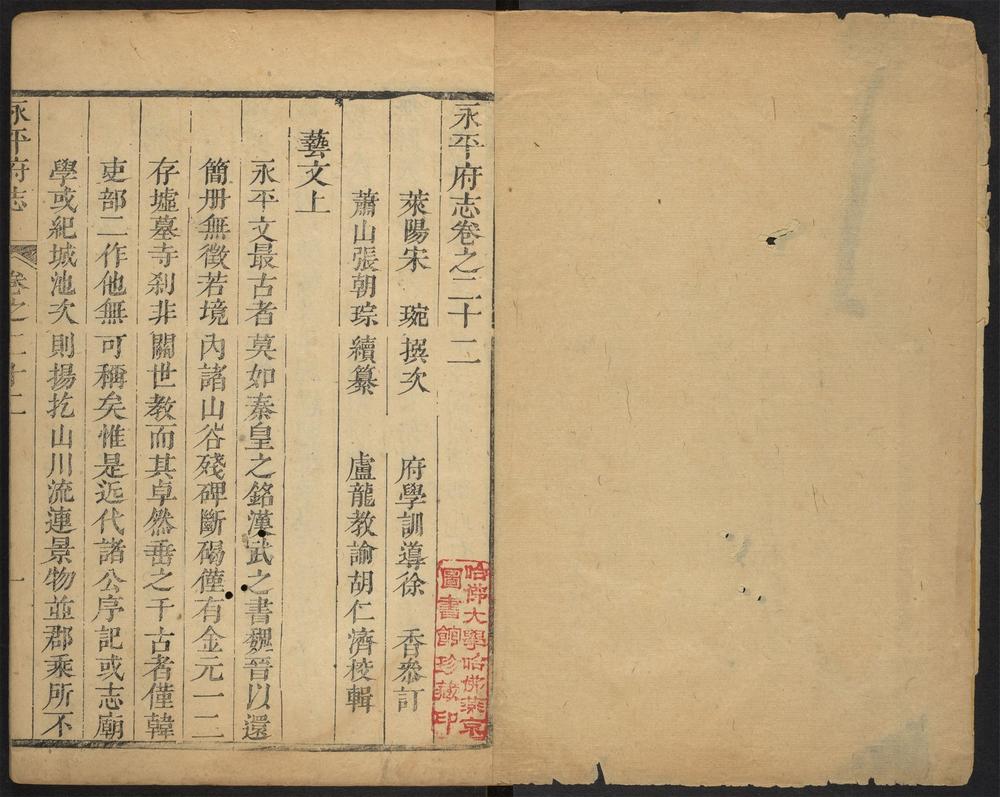 永平府志卷之二十二
萊陽宋　琬撰次　府學訓導徐　香叅訂
蕭山張朝琮續纂　盧龍教諭胡仁濟校輯
藝文上
永平文最古者莫如秦皇之銘漢武之書魏晉以還
簡册無徵若境內諸山谷殘碑斷碣僅有金元一二
存墟墓寺刹非關世教而其卓然垂之千古者僅韓
吏部二作他無可稱矣惟是近代諸公序記或志廟
學或紀城池次則揚扢山川流連景物並郡乘所不
永平府志　卷之二十二　一
哈佛大學哈佛燕京
圖書館珍藏印